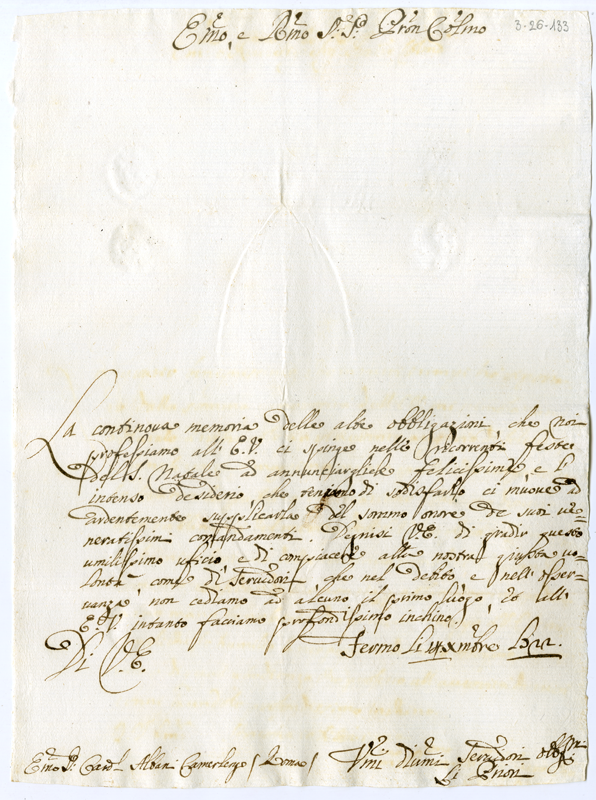 3-26-133
Emo, e Rmo Sr. Sr. Pron Colmo
La continova memoria delle alte obbligazioni, che noi
professiamo all' E.V. ci spinge nelle ricorrenti feste
del S. Natale ad annunciargliele felicissime, e l'
intenso desiderio che teniamo di sodisfarlo ci muove ad
ardentemente supplicarla del sommo onore de suoi ve=
neratissimi comandamenti. Degnisi V.E. di gradir questo
umilissimo uficio, e di compiacere alla nostra giusta vo=
lontà come di Servidori, che nel debito, e nell' osser=
vanza, non cediamo ad alcuno il primo luogo, et all'
E.V. intanto facciamo profondissimo inchino.
Fermo li Xmbre 1722.
Di V.E.
Emo Sr. Cardl Albani Camerlego (Roma)
Umi Divmi Servidori obblmi
Li Priori